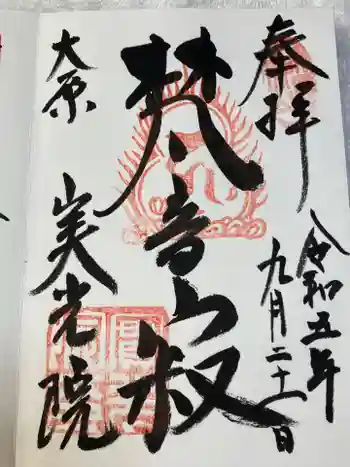 奉拝
令和五年
九月二十八日
梵音
大原
実光院